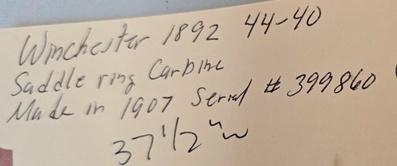 Winchester 1892 44-40
Saddle ring Carbine
Made in 1907 Serial # 399860
37 1/2" w